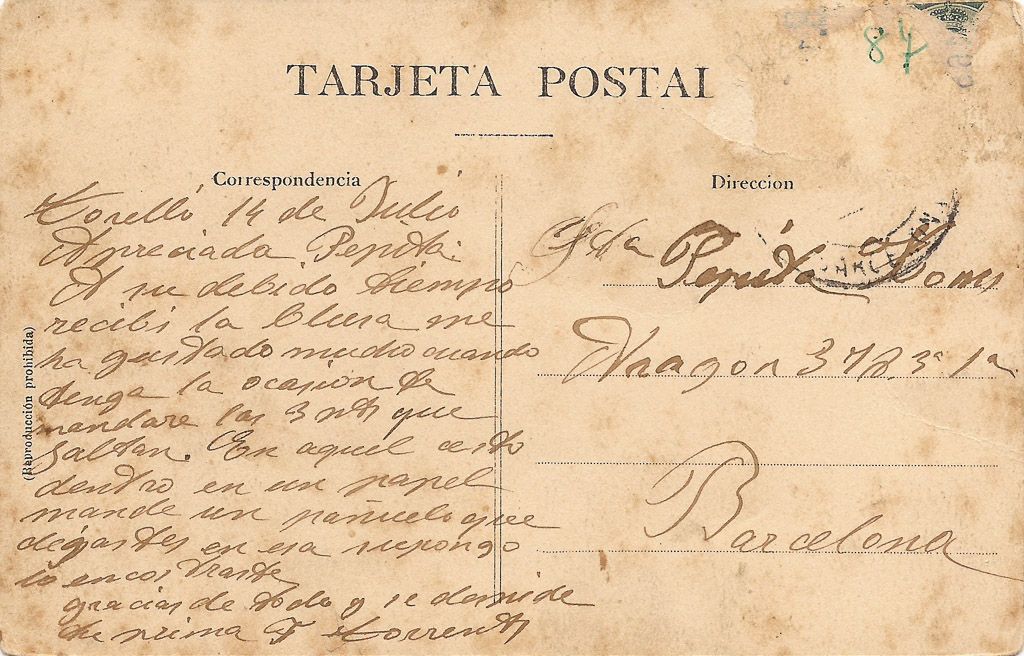 84
TARJETA POSTAL
Correspondencia
Direccion
(Reproducción prohibida)
Torelló 14 de Julio
Apreciada Pepita.
A su debido tiempo
recibi la blusa me
ha gustado mucho cuando
tenga la ocasion te
mandare las 3 que
faltan. En aquel cesto
dentro en un papel
mande un pañuelo que
en esa supongo
lo encontraste
gracias de todo y se despide
tu prima T Torrents
Sda Pepita
Aragon 378 3º 1ª
Barcelona